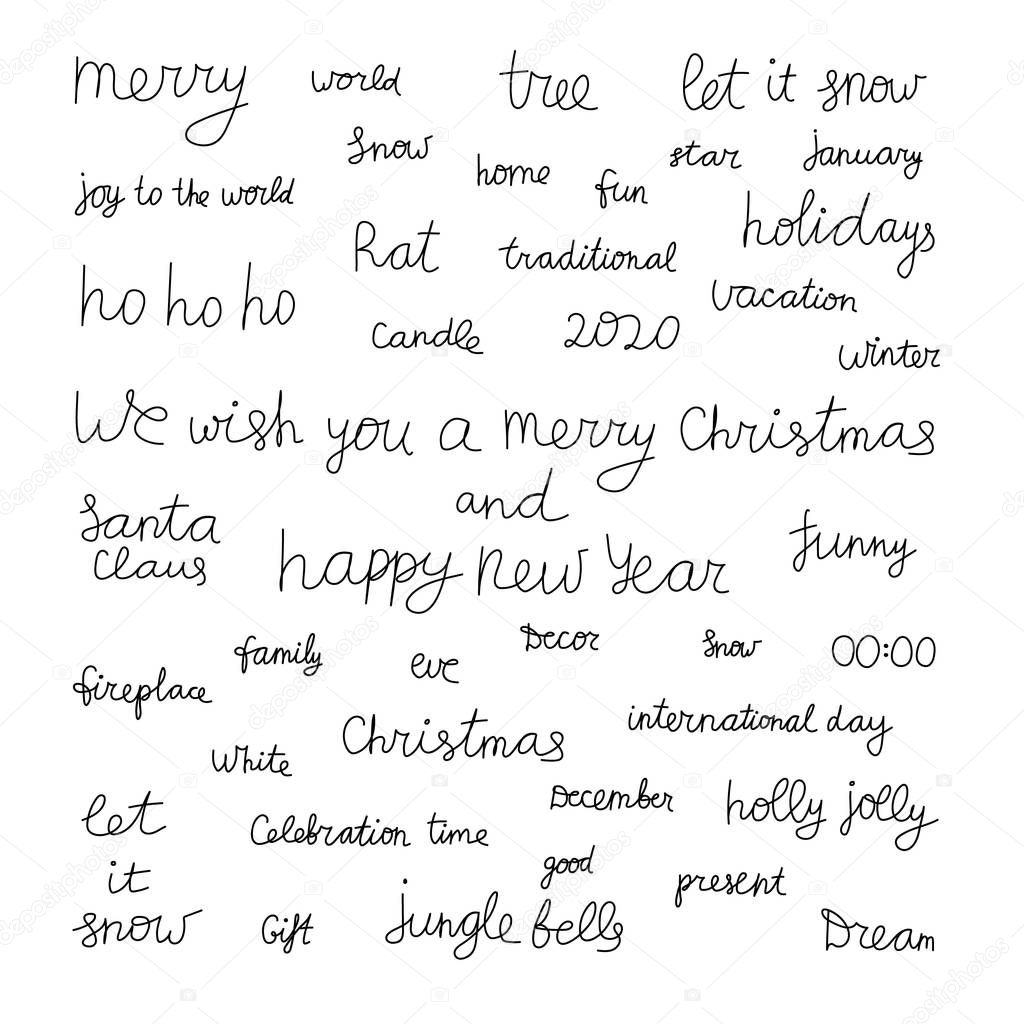 merry world tree let it snow
snow home star january
joy to the world fun
holidays
Rat traditional
ho ho ho vacation
candle 2020
winter
We wish you a merry Christmas
and
Santa
Claus
happy new Year
funny
family eve Decor snow 00:00
fireplace
Christmas international day
White
let
it
snow
December holly jolly
Celebration time
good present
Gift jungle bells Dream
depositphotos